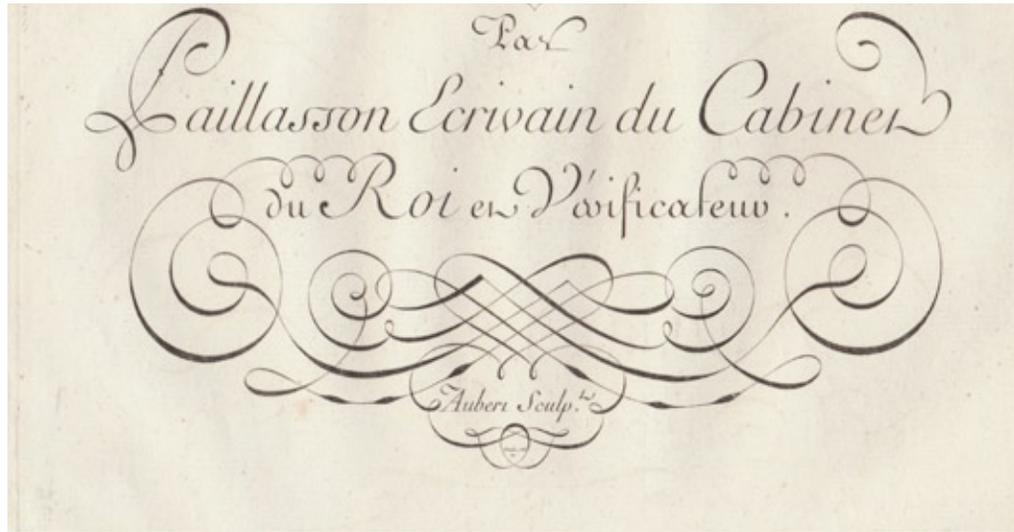 Par
Paillasson Ecrivain du Cabinet
du Roi et Vérificateur.
Aubert Sculp.t